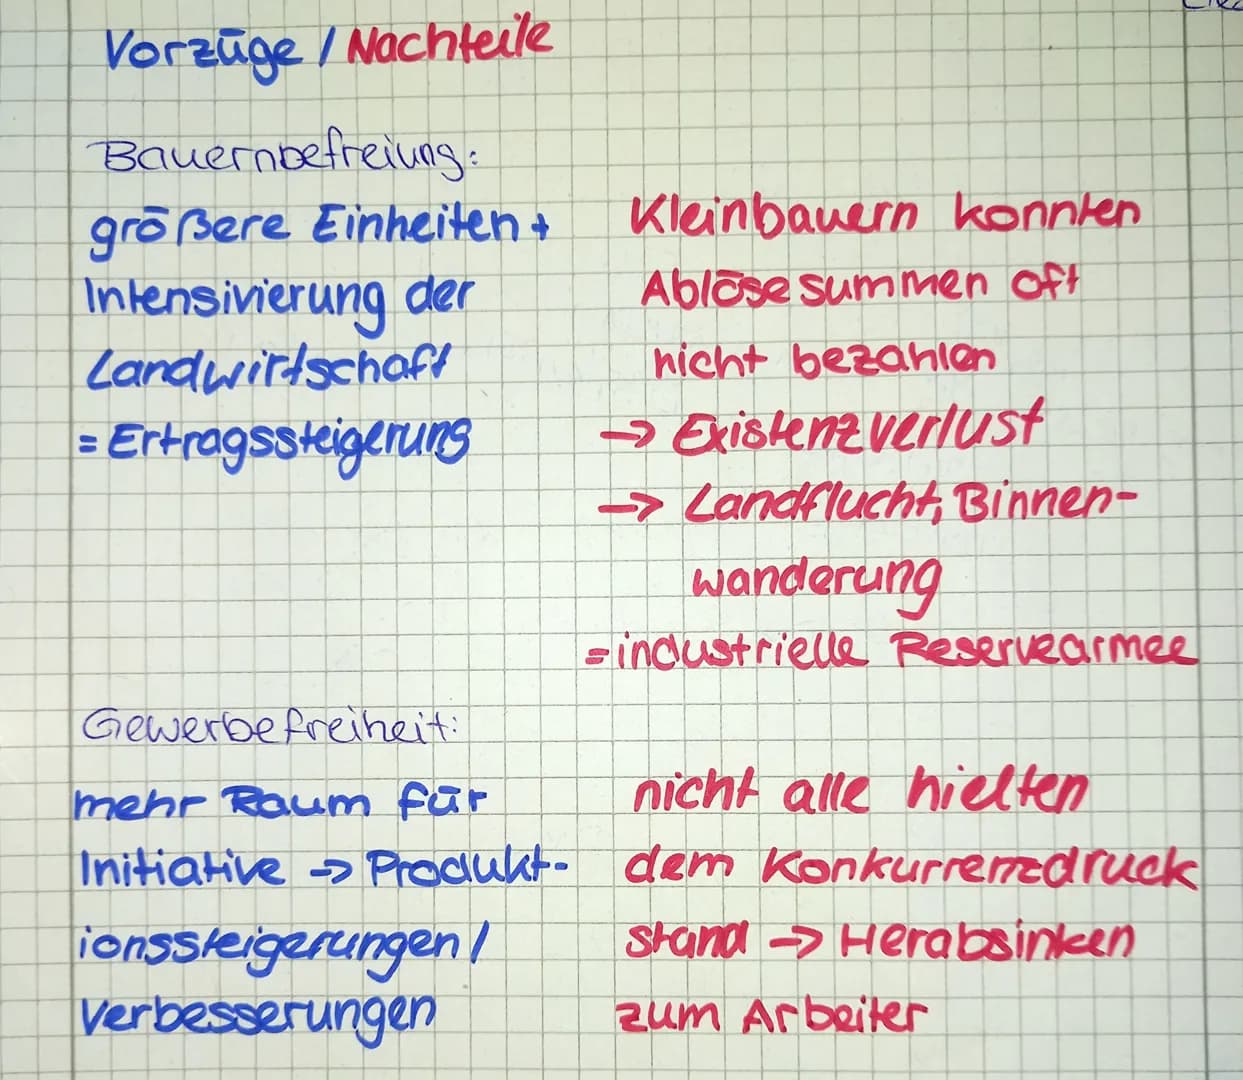 Vorzüge / Nachteile
Bauernbefreiung:
größere Einheiten +
Intensivierung der
Landwirtschaft
= Ertragssteigerung
Kleinbauern konnten
Ablösesummen oft
nicht bezahlen
→ Existenzverlust
→ Landflucht, Binnen-
wanderung
= industrielle Reservearmee
Gewerbefreiheit:
mehr Raum für
Initiative → Produkt-
ionssteigerungen /
verbesserungen
nicht alle hielten
dem Konkurrenzdruck
stand → Herabsinken
zum Arbeiter